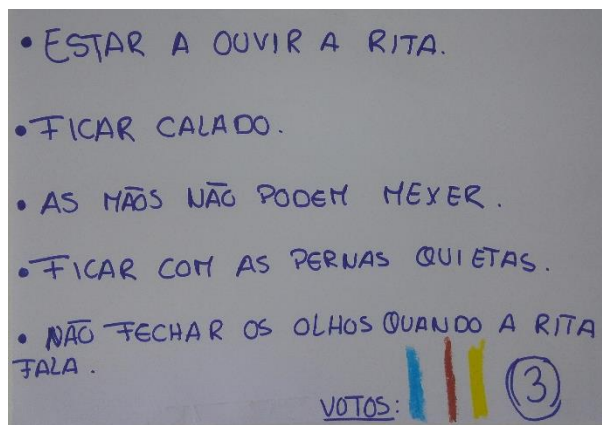 • ESTAR A OUVIR A RITA.
• FICAR CALADO.
• AS MÃOS NÃO PODEM MEXER.
• FICAR COM AS PERNAS QUIETAS.
• NÃO FECHAR OS OLHOS QUANDO A RITA
FALA.
VOTOS: 3